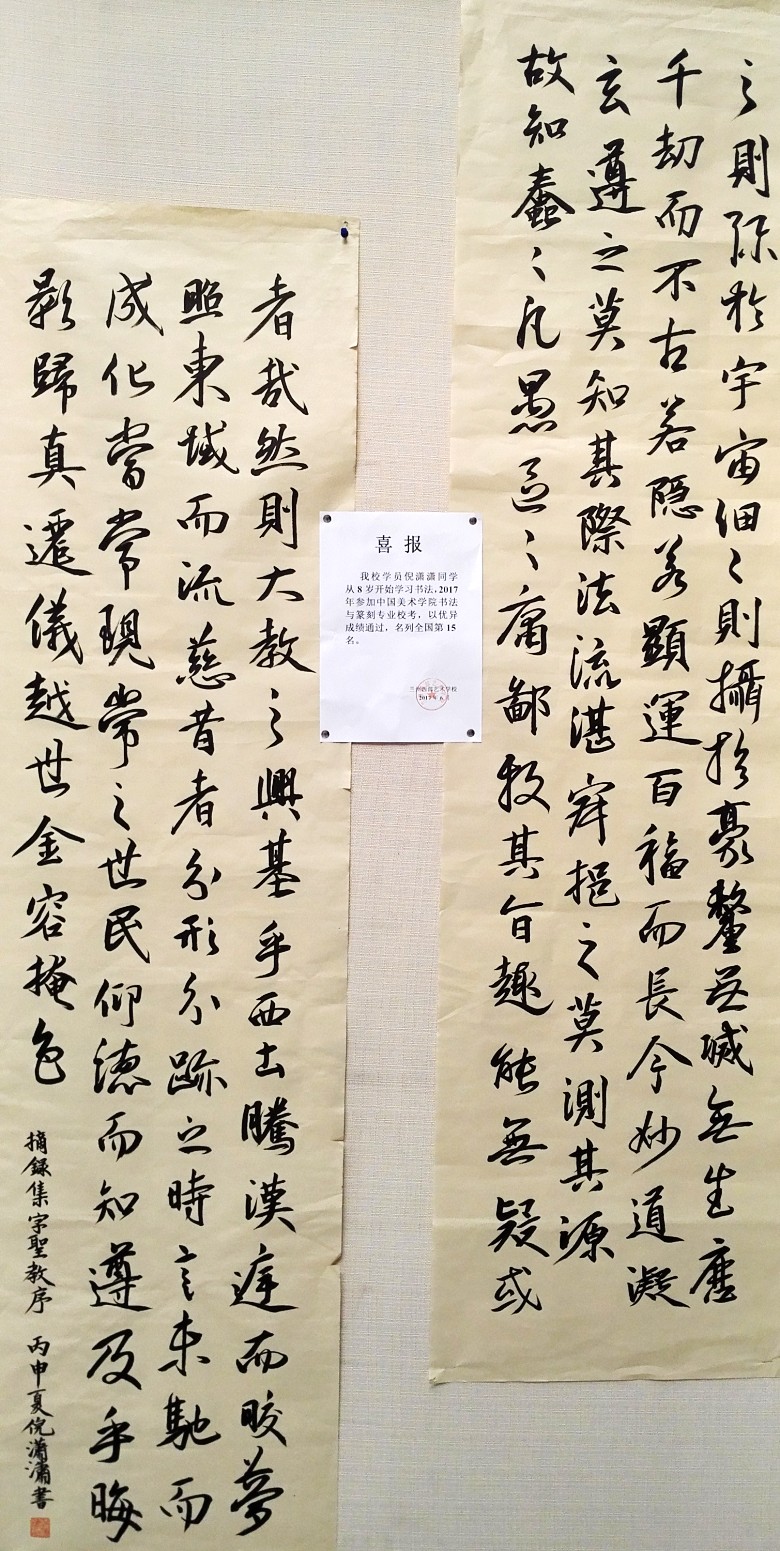 之則弥於宇宙細之則攝於豪釐无滅無生歷
千劫而不古若隱若顯運百福而長今妙道凝
玄遵之莫知其際法流湛寂挹之莫測其源
故知蠢〻凡愚區〻庸鄙投其旨趣能無疑或
喜报
我校学员倪潇潇同学
从8岁开始学习书法,2017
年参加中国美术学院书法
与篆刻专业校考,以优异
成绩通过,名列全国第15
名。
兰州西部艺术学校
2017年6月
者哉然則大教之興基乎西土騰漢庭而皎夢
照東域而流慈昔者分形分跡之時言未馳而
成化當常現常之世民仰德而知遵及乎晦
影歸真遷儀越世金容掩色
摘録集字聖教序 丙申夏倪瀟瀟書